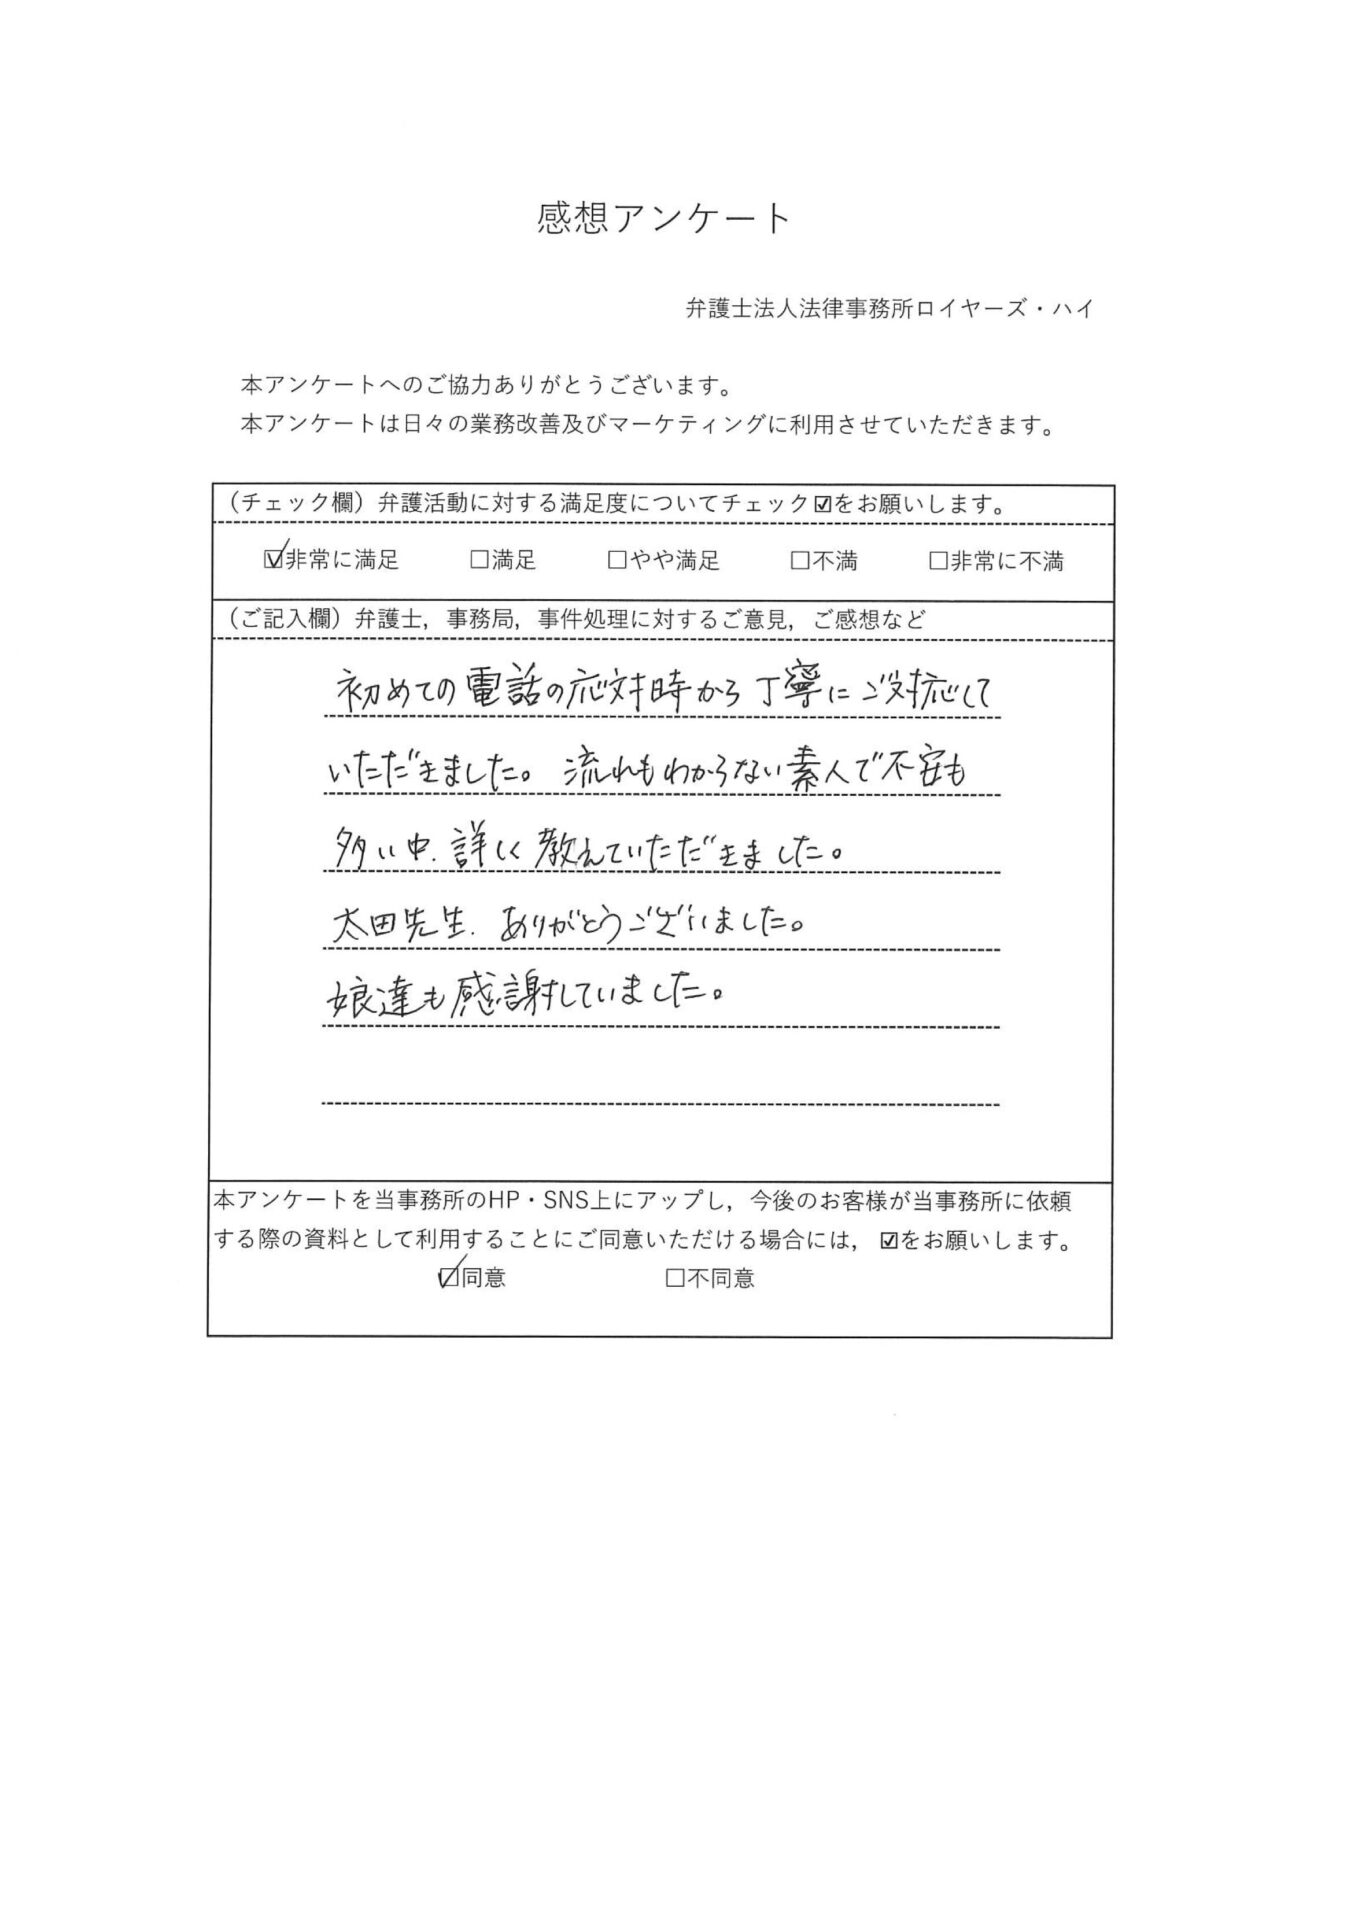 感想アンケート
弁護士法人法律事務所ロイヤーズ・ハイ
本アンケートへのご協力ありがとうございます。
本アンケートは日々の業務改善及びマーケティングに利用させていただきます。
（チェック欄）弁護活動に対する満足度についてチェック☑をお願いします。
☑非常に満足 □満足 □やや満足 □不満 □非常に不満
（ご記入欄）弁護士，事務局，事件処理に対するご意見，ご感想など
初めての電話の応対時から丁寧にご対応して
いただきました。流れもわからない素人で不安も
多い中、詳しく教えていただきました。
太田先生、ありがとうございました。
娘達も感謝していました。
本アンケートを当事務所のHP・SNS上にアップし，今後のお客様が当事務所に依頼
する際の資料として利用することにご同意いただける場合には，☑をお願いします。
☑同意 □不同意